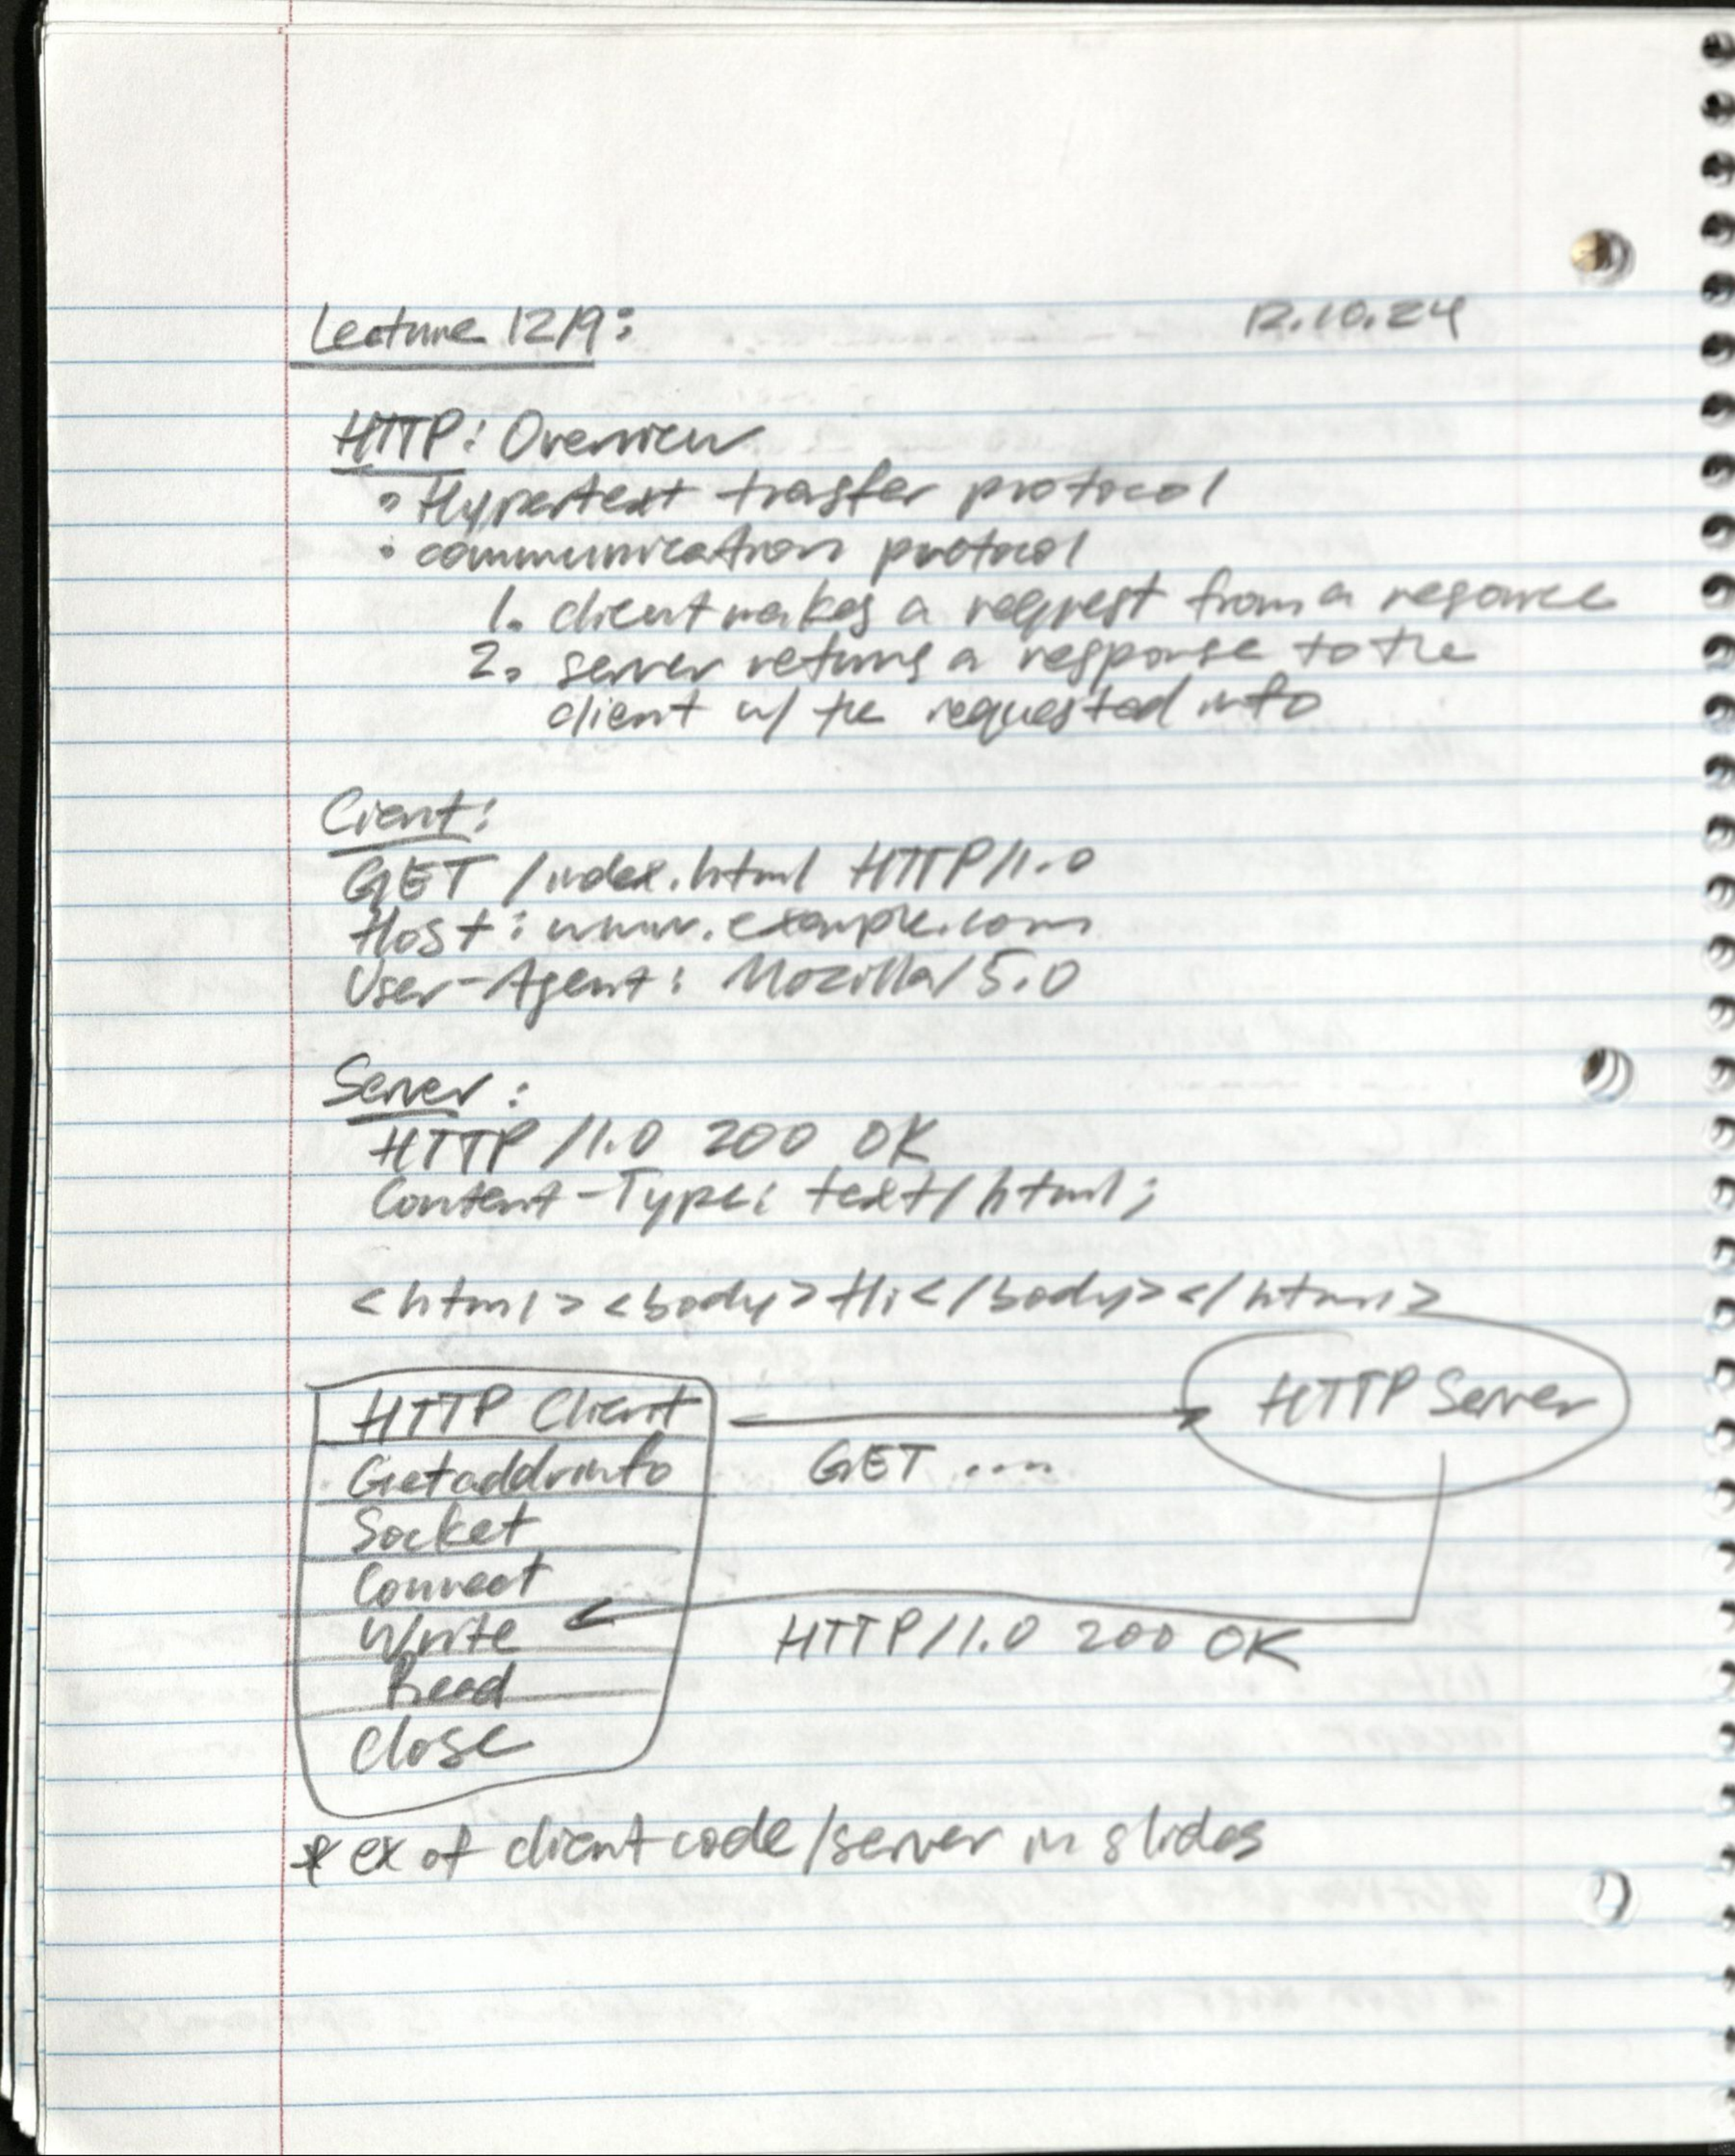 Lecture 12/9: 12.10.24
HTTP: Overview
• Hypertext trasfer protocol
• communication protocol
1. client makes a request from a resource
2. server returns a response to the
client w/ the requested info
Client:
GET /index.html HTTP/1.0
Host: www.example.com
User-Agent: Mozilla/5.0
Server:
HTTP/1.0 200 OK
Content-Type: text/html;
<html><body>Hi</body></html>
HTTP Client
GET ....
HTTP Server
Getaddrinfo
Socket
Connect
Write
HTTP/1.0 200 OK
Read
Close
* ex of client code/server in slides